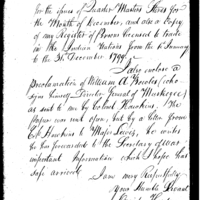 for the Office of Quarter Masters Stores for
the Month of December, and also a Copy
of my Register of Persons licensed to trade
in the Indian Nations from the 6 January
to the 31 December 1799.
I also enclose a
Proclamation of William A Bowles (who
signs himself Director General of Muskogee)
as sent to me by Colonel Hawkins, The
paper was sent open, but by a letter from
Col Hawkins to Major Lewis, he writes
he has forwarded to the Secretary of War
important information which I hope has
safe arrived.
I am very Respectfully
Your Humble Servant